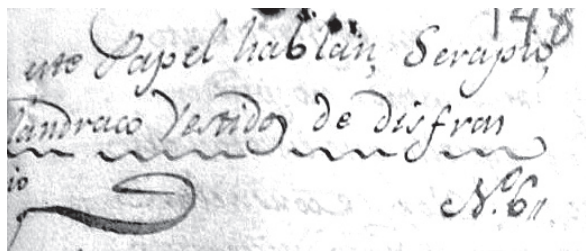 148
ute Papel hablan, Serapio,
landraco Vestido de disfras
io
N.º 6